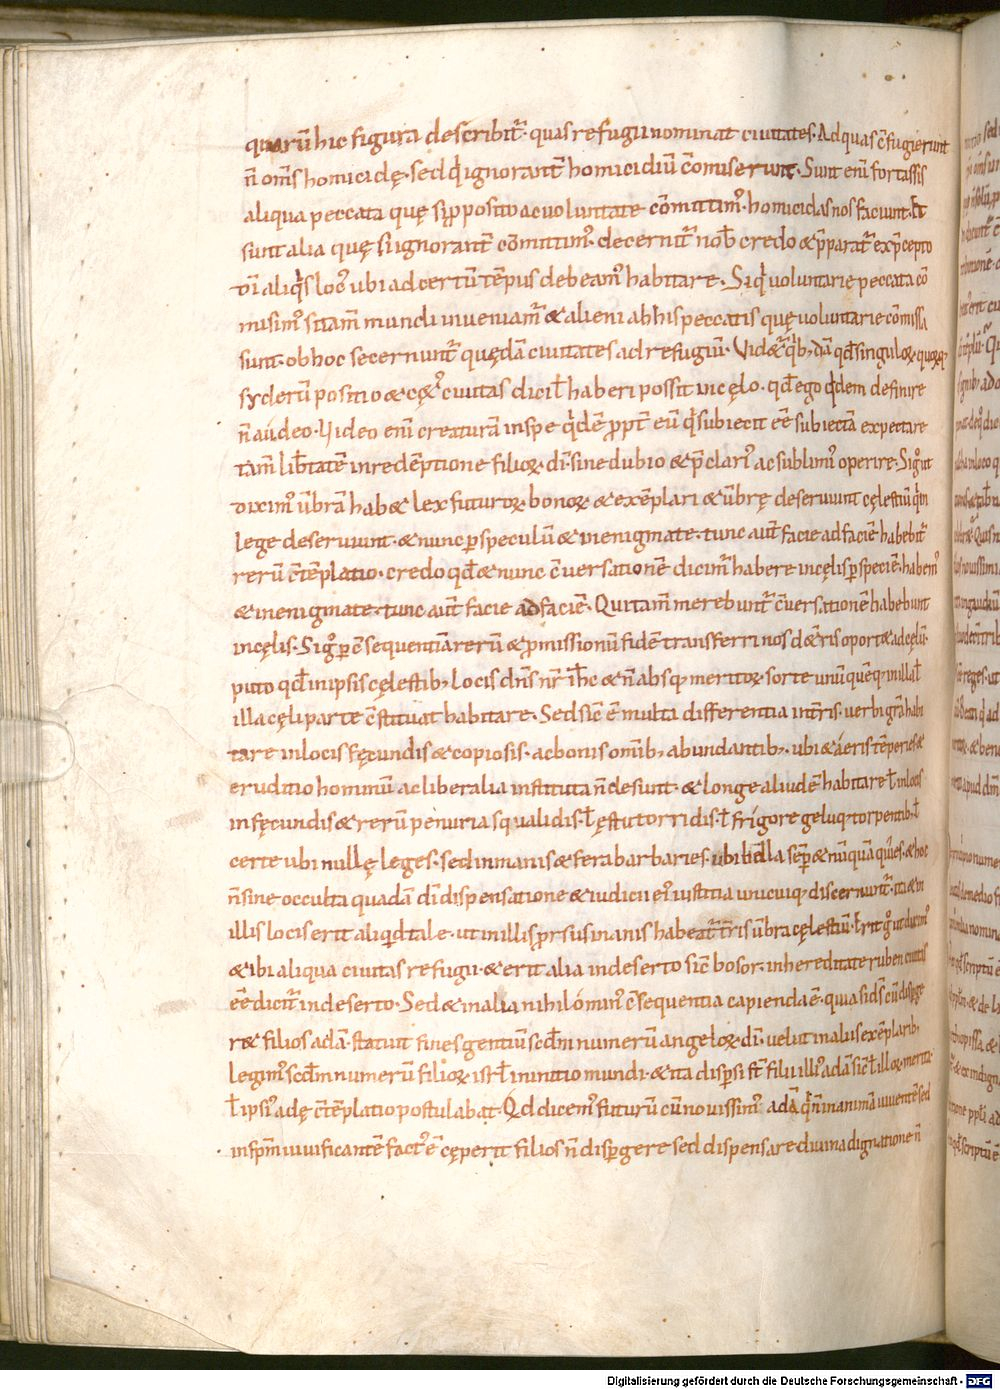 quarū hic figura describit᷑· quas refugii nominat ciuitates· Ad quas c̄fugierunt
n̄ om̄s homicidę· sed q̇ ignorant̄ homicidiū c̄miserunt· Sunt eni fortassis
aliqua peccata quę si ꝓposito ac uoluntate cōmittim᷒· homicidas nos faciunt· Et
sunt alia quę si ignorant̄ cōmittim᷒· decernit᷑ nob̄ credo & p̄parat᷑ ex p̄cepto
dī aliq̇s loc᷒ ubi ad certū tēpus debeam᷒ habitare· Si q̇ uoluntarie peccata cō
misim᷒ si tam̄ mundi inueniam᷑ & alieni ab his peccatis quę uoluntarie cōmissa
sunt· ob hoc secernunt᷑ quędā ciuitates ad refugiū· Videt᷑ q̇bꝫdā qd̄ singuloꝝ quoꝝqꝫ
syderū positio & cęt᷒ ciuitas dici ł haberi possit in cęlo· qd̄ ego q̇dem definire
n̄ audeo· Video eni creaturā in spe q̇dē ꝓpt̄ eū q̇ subiecit eē subiectā expectare
tam̄ lib̄tatē in redēptione filioꝝ dī· sine dubio & p̄clari᷒ ac sublimi᷒ operire· Sig᷒ ut
diximus ūbrā hab& lex futuroꝝ bonoꝝ & exēplari & ūbrę deseruiunt cęlestiū q̇ in
lege deseruiunt· & nunc ꝑ speculū & in enigmate· tunc aut̄ facie ad faciē habebit᷑
rerū c̄tēplatio· credo qd̄ & nunc c̄uersationē dicim᷑ habere in cęlis ꝑ speciē· habem᷒
& in enigmate· tunc aut̄ facie ad faciē· Qui tam̄ merebunt᷑ c̄uersationē habebunt
in cęlis· Sig᷒ ꝑ c̄sequentiā rerū & ꝓmissionū fidē transferri nos de t̄ris oport& ad cęlū·
puto qd̄ in ipsis cęlestibꝫ locis dn̄s nr̄ ih̄c & n̄ absqꝫ meritoꝝ sorte unū quēqꝫ in illa ł
illa cęli parte c̄stituat habitare· Sed sic̄ ē multa differentia in t̄ris· uerbi gr̄a habi
tare in locis fęcundis & copiosis· ac bonis omībꝫ abundantibꝫ· ubi & aeris tēperies &
eruditio hominū ac liberalia instituta n̄ desunt· & longe aliud ē habitare ł in locis
infęcundis & rerū penuria squalidis· ł ęstu torridis· ł frigore geluqꝫ torpentibꝫ· ł
certe ubi nullę leges· sed inmanis & fera barbaries· ubi bella sēp & nūquā quies· & hoc
n̄ sine occulta quadā dī dispensatione & iudicii ei᷒ iustitia unicuiqꝫ discernunt᷑· ita & in
illis locis erit aliqd̄ tale· ut in illis ꝓrsus inanis habeat᷑ t̄ris ūbra cęlestiū· Erit g᷒ ut dixim᷒
& ibi aliqua ciuitas refugii· & erit alia in deserto sic̄ bosor· in hereditate ruben ciuitas
eē dicit᷑ in deserto· Sed & in alia nihilomin᷒ c̄sequentia capienda ē· quia si ds̄ cū disꝑge
r& filios adā· statuit fines gentiū scd̄m numerū angeloꝝ dī· uel ut in aliis exēplaribꝫ
legim᷒ scd̄m numerū filioꝝ isr̄ł in initio mundi· & ita disꝑsi st̄ filii illi᷒ adā sic̄ ł illoꝝ merita
ł ipsi᷒ adę c̄tēplatio postulabat· Qd dicem᷒ futurū cū nouissim᷒ adā q̇ n̄ in animā uiuentē sed
in sp̄m uiuificantē fact᷒ ē cęperit filios n̄ disꝑgere sed dispensare diuina dignatione n̄
Digitalisierung gefördert durch die Deutsche Forschungsgemeinschaft - DFG